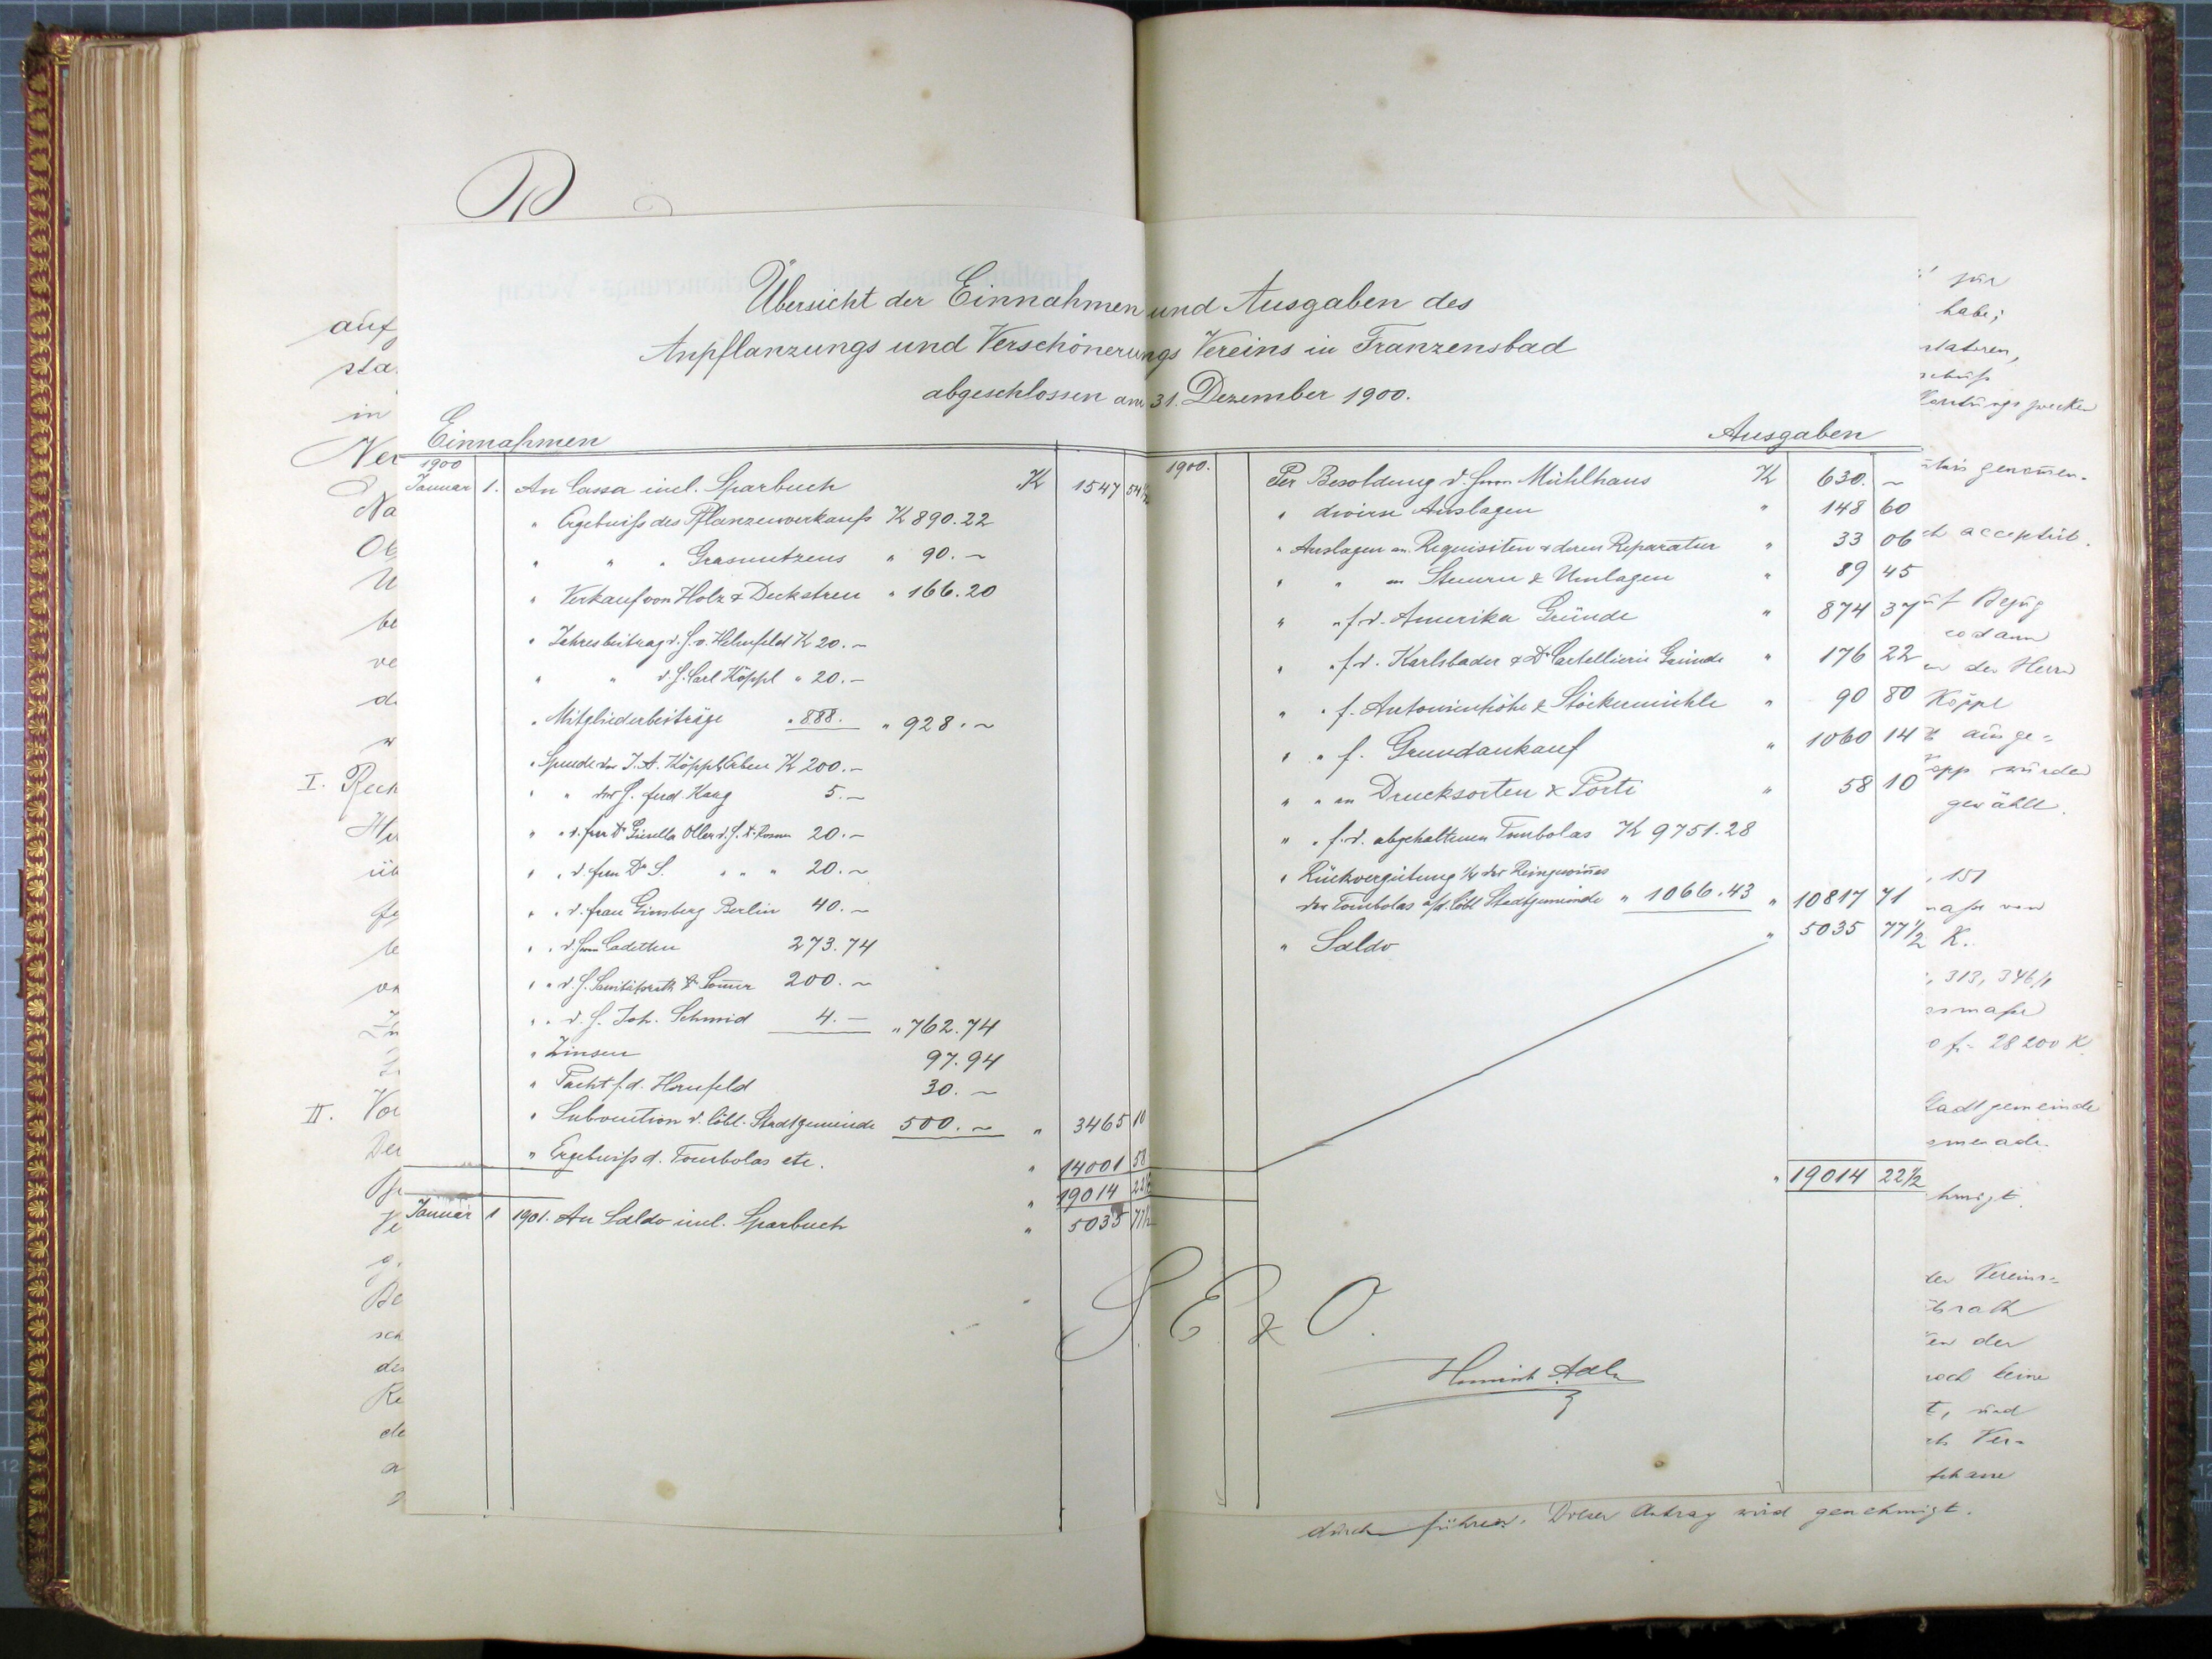 Übersicht der Einnahmen und Ausgaben des
Anpflanzungs und Verschönerungs Vereins in Franzensbad
abgeschlossen am 31. Dezember 1900.
Einnahmen
1900
Januar 1. An Cassa incl. Sparbuch K 1547 54½
" Ergebniß des Pflanzenverkaufs K 890.22
" " " Grasnutzens " 90.–
" Verkauf von Holz & Deckstreu " 166.20
" Jahresbeitrag v. H. v. Helmfeld K 20.–
" " v. H. Carl Köppl " 20.–
" Mitgliederbeiträge " 888. " 928.–
" Spende der J. A. Köppl Erben K 200.–
" " des H. Ferd. Karg 5.–
" " v. Frau Dr Gisella v. H. Dr 20.–
" " v. Frau Dr S. " " " 20.–
" " v. Frau Ginsberg Berlin 40.–
" " v. Herrn Cadetten 273.74
" " v. H. Sanitätsrath Dr Somer 200.–
" " v. H. Joh. Schmid 4.– " 762.74
" Zinsen 97.94
" Pacht f. d. Hernfeld 30.–
" Subvention v. löbl. Stadtgemeinde 500.– " 3465 10
" Ergebniß d. Tombolas etc. " 14001 58
" 19014 22½
Januar 1 1901. An Saldo incl. Sparbuch " 5035 77½
Ausgaben
1900.
Per Besoldung d. Herrn Mühlhaus K 630.–
" diverse Auslagen " 148 60
" Auslagen an Requisiten & deren Reparatur " 33 06
" " an Steuern & Umlagen " 89 45
" " f. d. Amerika Gründe " 874 37
" " f. d. Karlsbader & Dr Cartellieri Gründe " 176 22
" " f. Antonienhöhe & Stöckermühle " 90 80
" " f. Grundankauf " 1060 14
" " an Drucksorten & Porti " 58 10
" " f. d. abgehaltenen Tombolas K 9751.28
" Rückvergütung ¼ des Reingewinnes
der Tombolas a/d. löbl Stadtgemeinde " 1066.43 " 10817 71
" Saldo " 5035 77½
" 19014 22½
S. E. & O.
Heinrich Adler
auf
sta
in
Ver
Na
Ob
be
ve
I. Rech
üb
II. Vor
für
habe;
genomen.
acceptirt.
Bezug
sodann
der Herrn
Köppl
ausge=
würden
gewählt.
151
K.
, 313, 346/1
28200 K.
Stadtgemeinde
der Vereins=
noch keine
, und
Ver-
durch führen. Dieser Antrag wird genehmigt.